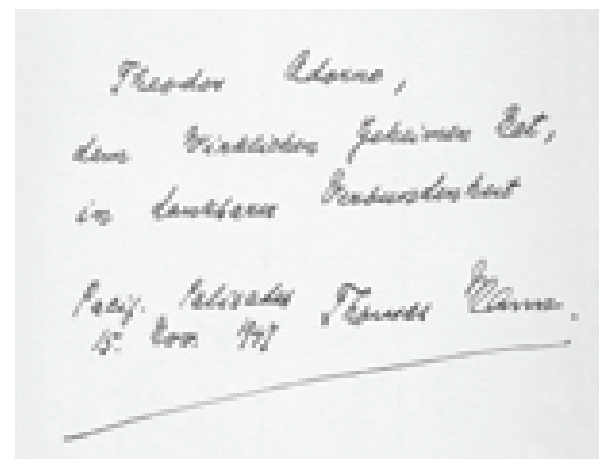 Theodor Adorno,
dem Wirklichen Geheimen Rat,
in dankbarer Verbundenheit
Pacif. Palisades Thomas Mann.
15. Nov. 1947